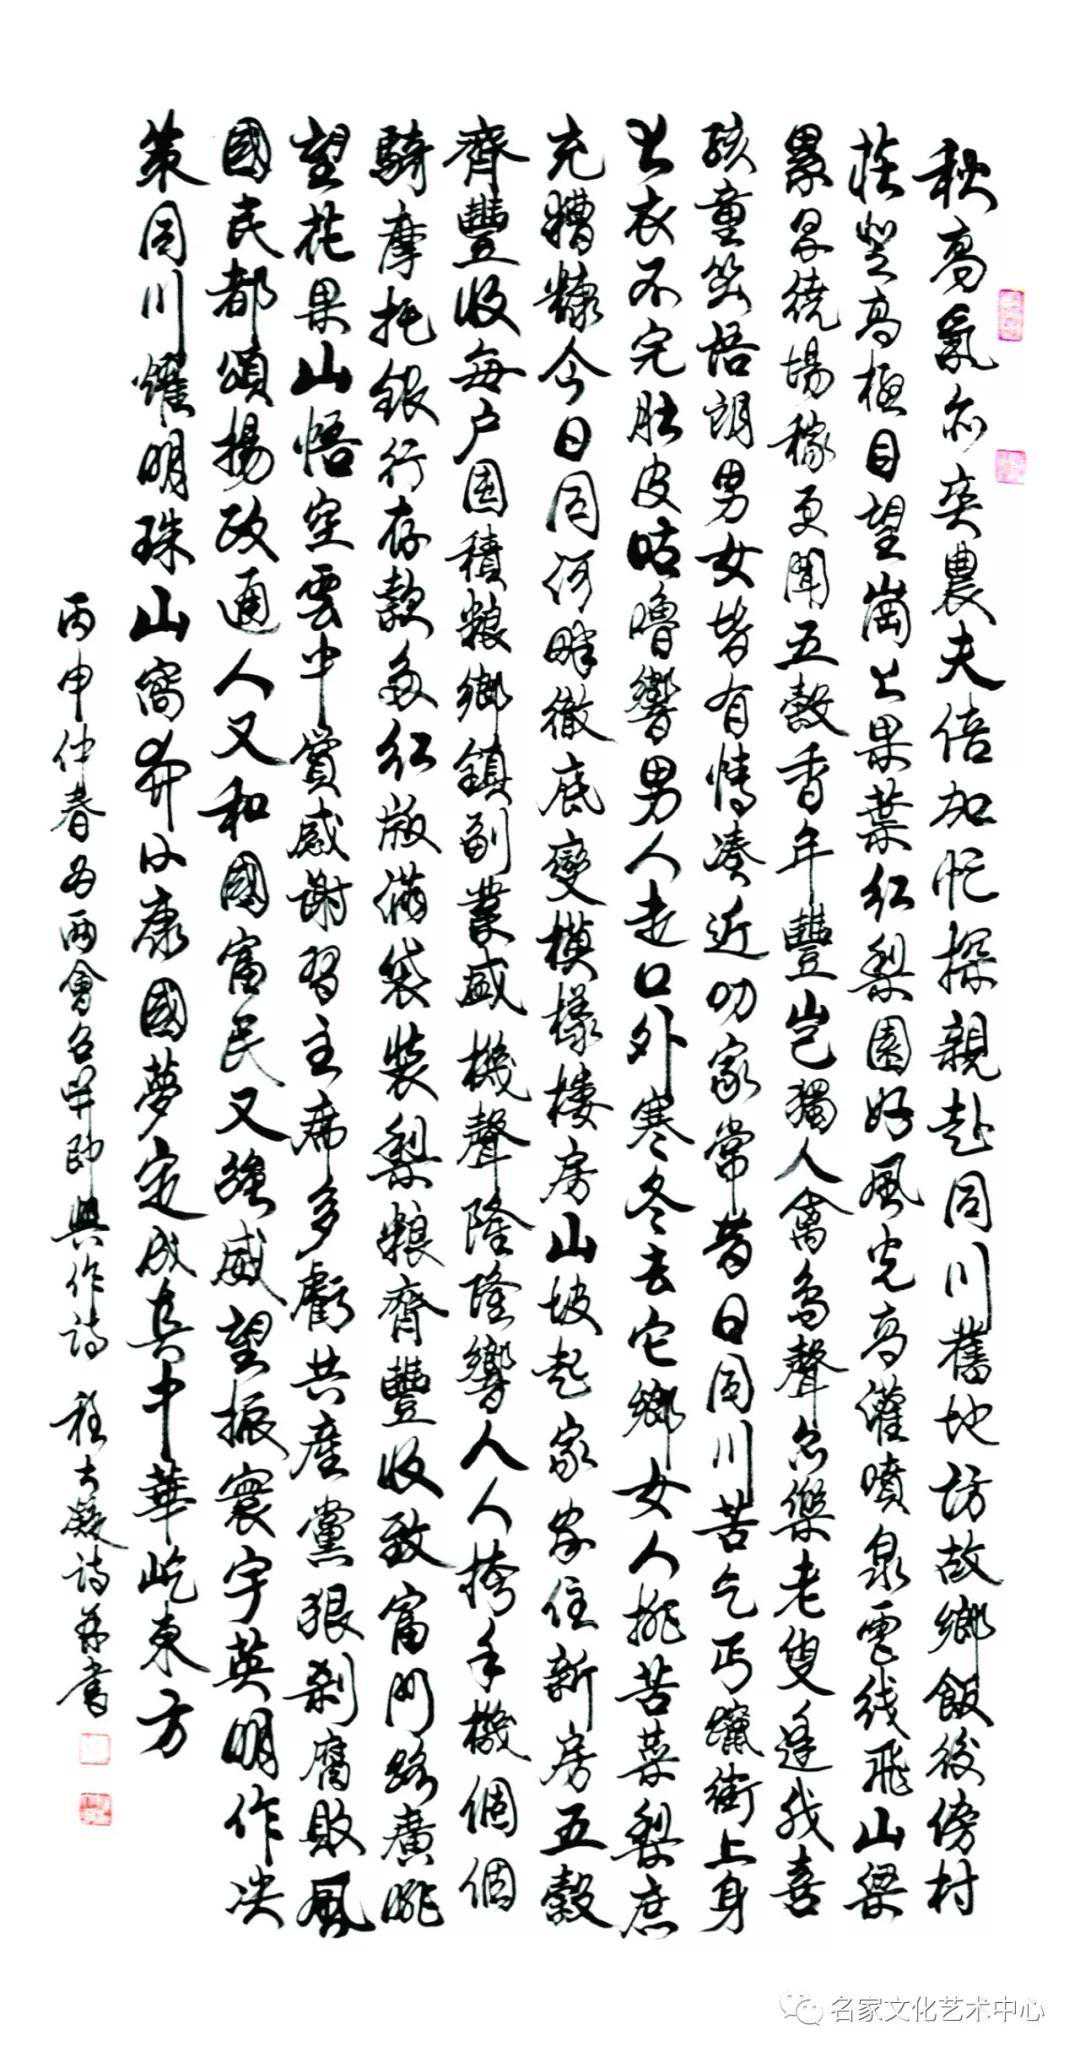 秋高氣爽農夫倍加忙探親赴同川舊地訪故鄉飯後傍村
莊登高極目望崗上果葉紅梨園好風光高灌噴泉電线飛山梁
累旱繞場稼更聞五穀香年豐豈獨人禽鳥聲樂老叟逢我喜
孩童笑語朗男女皆有情湊近叨家常昔日同川苦乞丐躥街上身
上衣不完肚皮咕嚕響男人走口外寒冬去它鄉女人挑苦菜梨庶
充糟糠今日同河畔徹底變模樣樓房山坡起家家住新房五穀
齊豐收每户囤積粮鄉鎮副業盛機聲隆隆響人人挎手機個個
騎摩托銀行存款多红版满袋裝梨粮齊豐收致富門路廣眺
望花果山悟空雲中賞感谢習主席多虧共產黨狠刹腐敗風
國民都頌揚政通人又和國富民又强威望振寰宇英明作决
策同川耀明珠山窩奔小康國夢定成真中華屹東方
丙申仲春為兩會召開即興作詩 程大凝詩并書
名家文化艺术中心